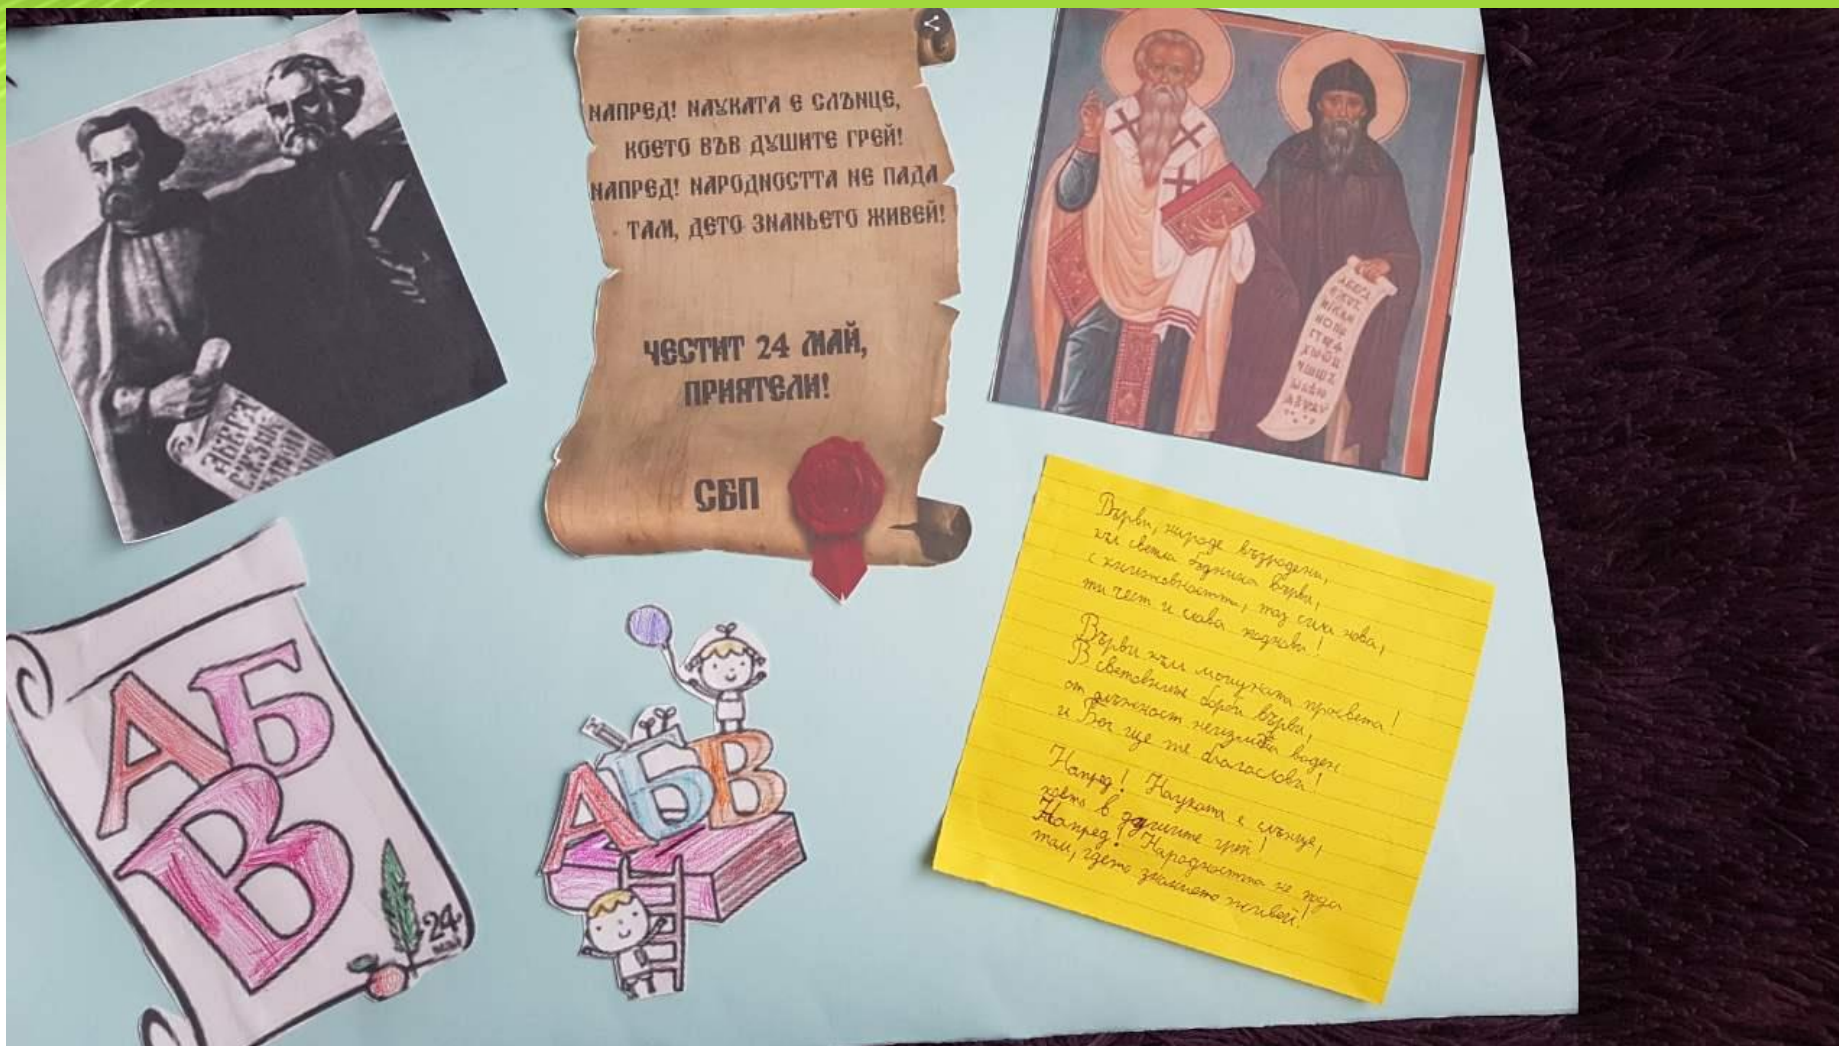 НАПРЕД! НАУКАТА Е СЛЪНЦЕ,
КОЕТО ВЪВ ДУШИТЕ ГРЕЙ!
НАПРЕД! НАРОДНОСТТА НЕ ПАДА
ТАМ, ДЕТО ЗНАНЬЕТО ЖИВЕЙ!
ЧЕСТИТ 24 МАЙ,
ПРИЯТЕЛИ!
СБП
АБ
В
24
май
АБВ
Върви, народе възродени,
към светла бъднина върви,
с книжовността, таз сила нова,
ти чест и слава поднови!
Върви към мощната просвета!
В световните борби върви,
от длъжност неизменна воден
и Бог ще те благослови!
Напред! Науката е слънце,
което в душите грей!
Напред! Народността не пада
там, гдето знанието живей!